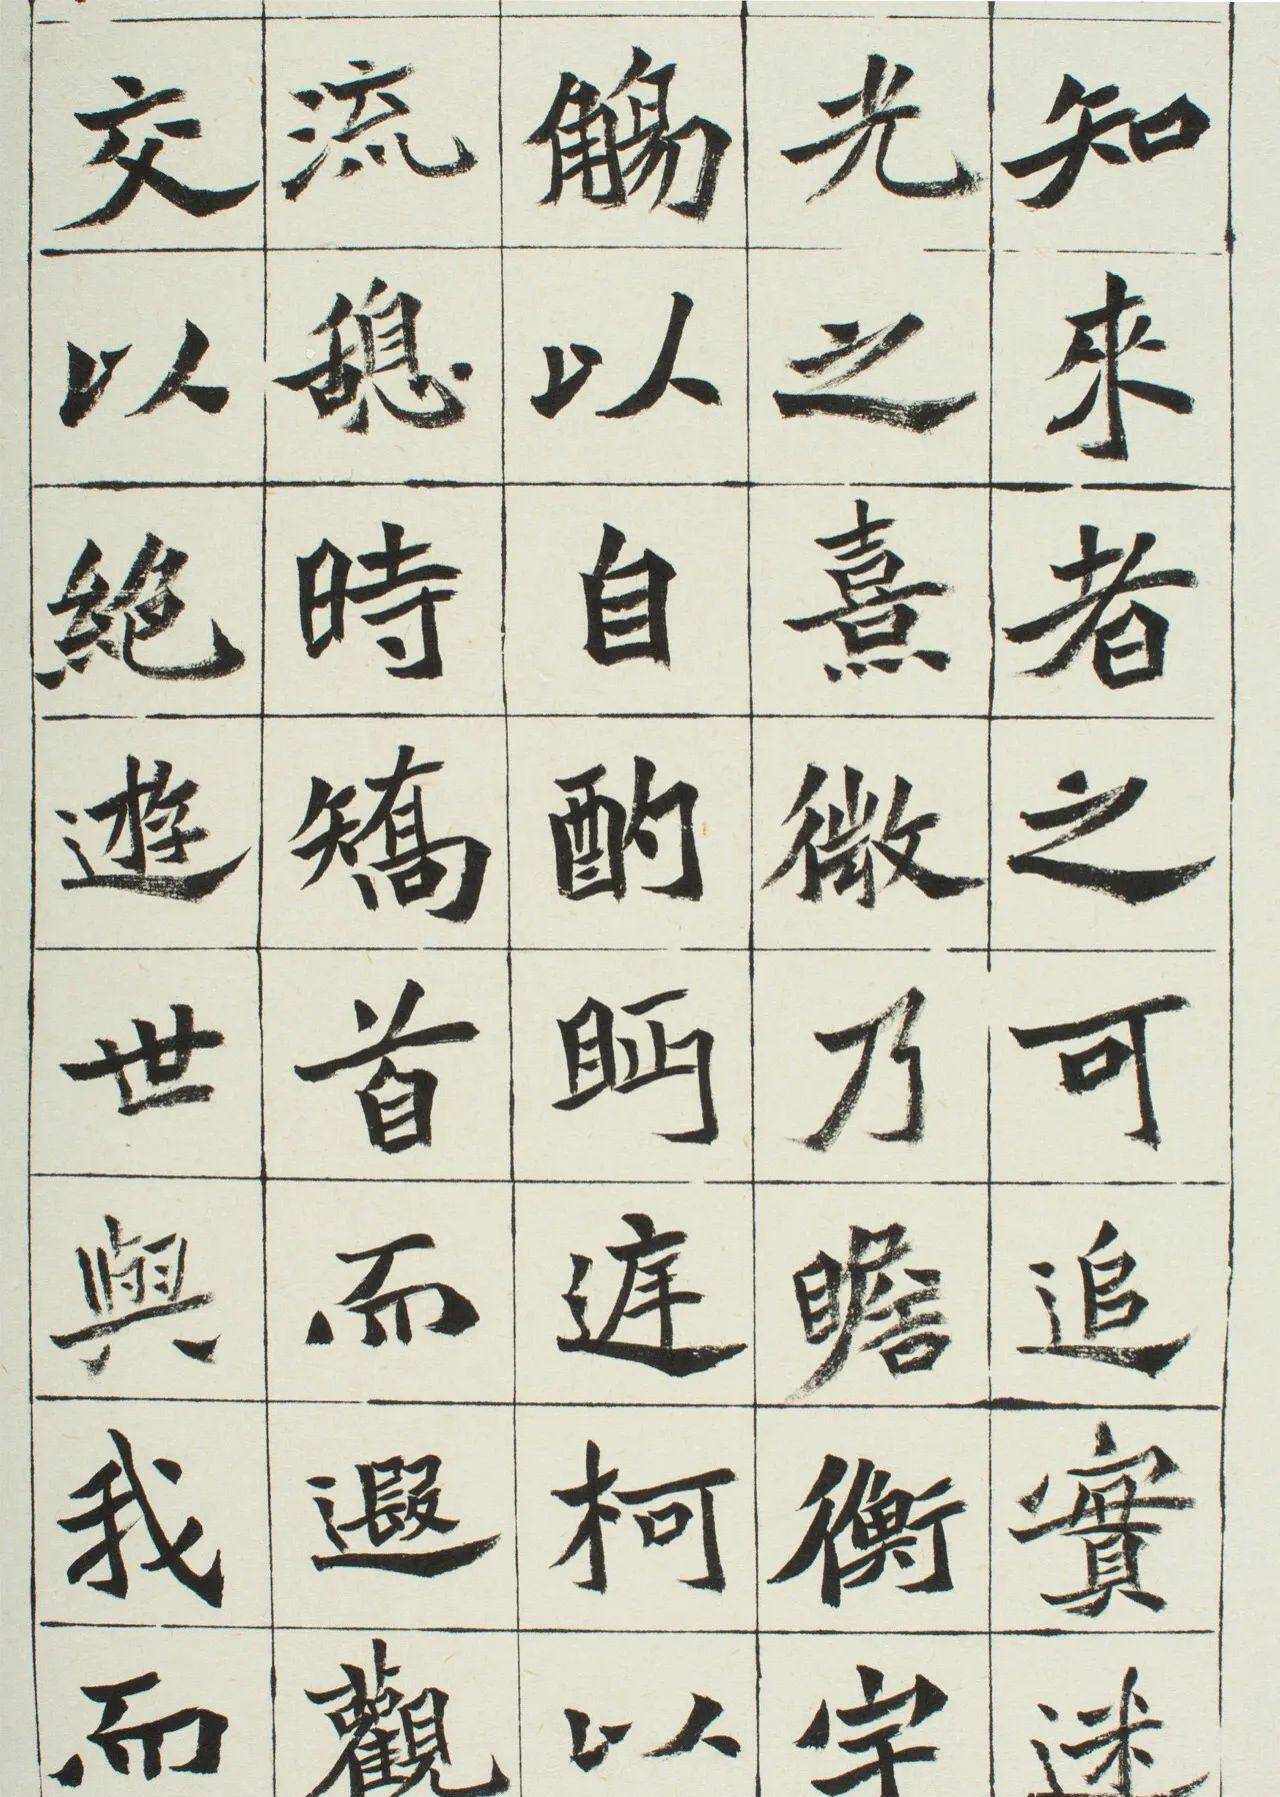 知來者之可追實迷
光之熹微乃瞻衡宇
觴以自酌眄庭柯以
流憩時矯首而遐觀
交以絶遊世與我而